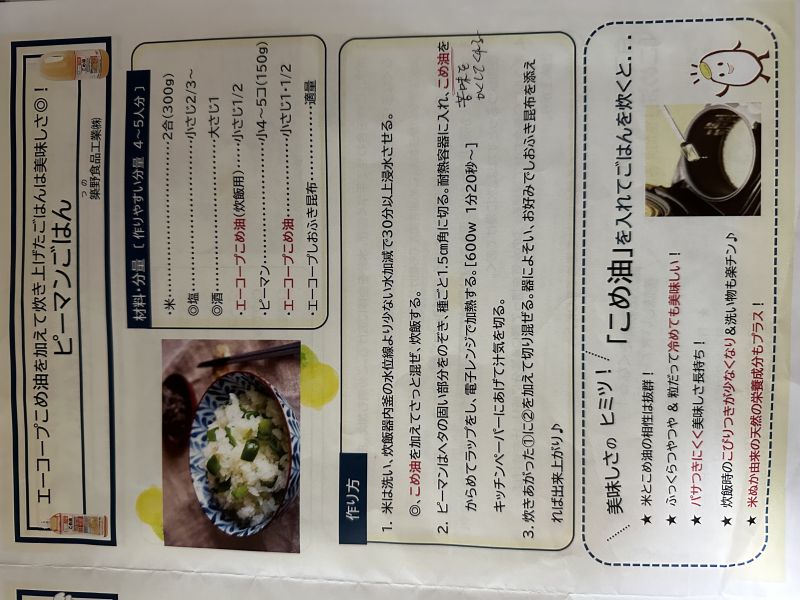 エーコープこめ油を加えて炊き上げたごはんは美味しさ◎！
ピーマンごはん
築野食品工業㈱
つの
材料・分量 〔 作りやすい分量 4～5人分 〕
・米………………………2合(300g)
◎塩………………………小さじ2/3～
◎酒………………………大さじ1
・エーコープこめ油(炊飯用)…小さじ1/2
・ピーマン…………………小4～5コ(150g)
・エーコープこめ油…………小さじ1・1/2
・エーコープしおふき昆布………適量
作り方
1. 米は洗い、炊飯器内釜の水位線より少ない水加減で30分以上浸水させる。
◎、こめ油を加えてさっと混ぜ、炊飯する。
2. ピーマンはヘタの固い部分をのぞき、種ごと1.5㎝角に切る。耐熱容器に入れ、こめ油を
からめてラップをし、電子レンジで加熱する。[600w 1分20秒～]
キッチンペーパーにあげて汁気を切る。
苦味を
3. 炊きあがった①に②を加えて切り混ぜる。器によそい、お好みでしおふき昆布を添え
れば出来上がり♪
美味しさの ヒミツ！ 「こめ油」を入れてごはんを炊くと…
★ 米とこめ油の相性は抜群！
★ ふっくらつやつや ＆ 粒だって冷めても美味しい！
★ パサつきにくく美味しさ長持ち！
★ 炊飯時のこびりつきが少なくなり＆洗い物も楽チン♪
★ 米ぬか由来の天然の栄養成分もプラス！